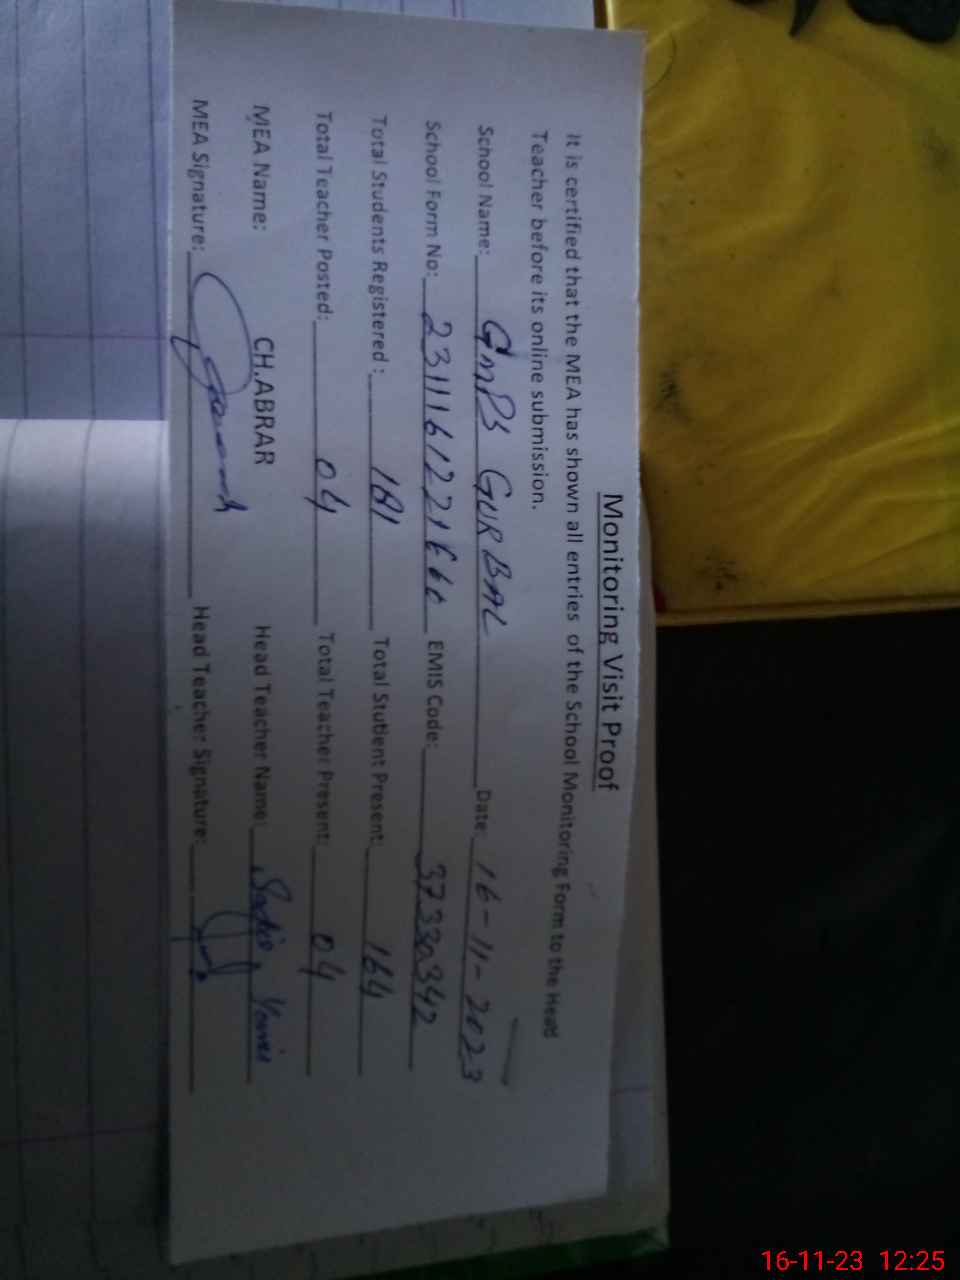 Monitoring Visit Proof
It is certified that the MEA has shown all entries of the School Monitoring Form to the Head
Teacher before its online submission.
School Name: GMPS GURBAL Date: 16-11-2023
School Form No: EMIS Code: 37330342
Total Students Registered : 181 Total Student Present: 164
Total Teacher Posted: 04 Total Teacher Present: 04
MEA Name: CH.ABRAR Head Teacher Name: Sadia
MEA Signature: Head Teacher Signature:
16-11-23 12:25